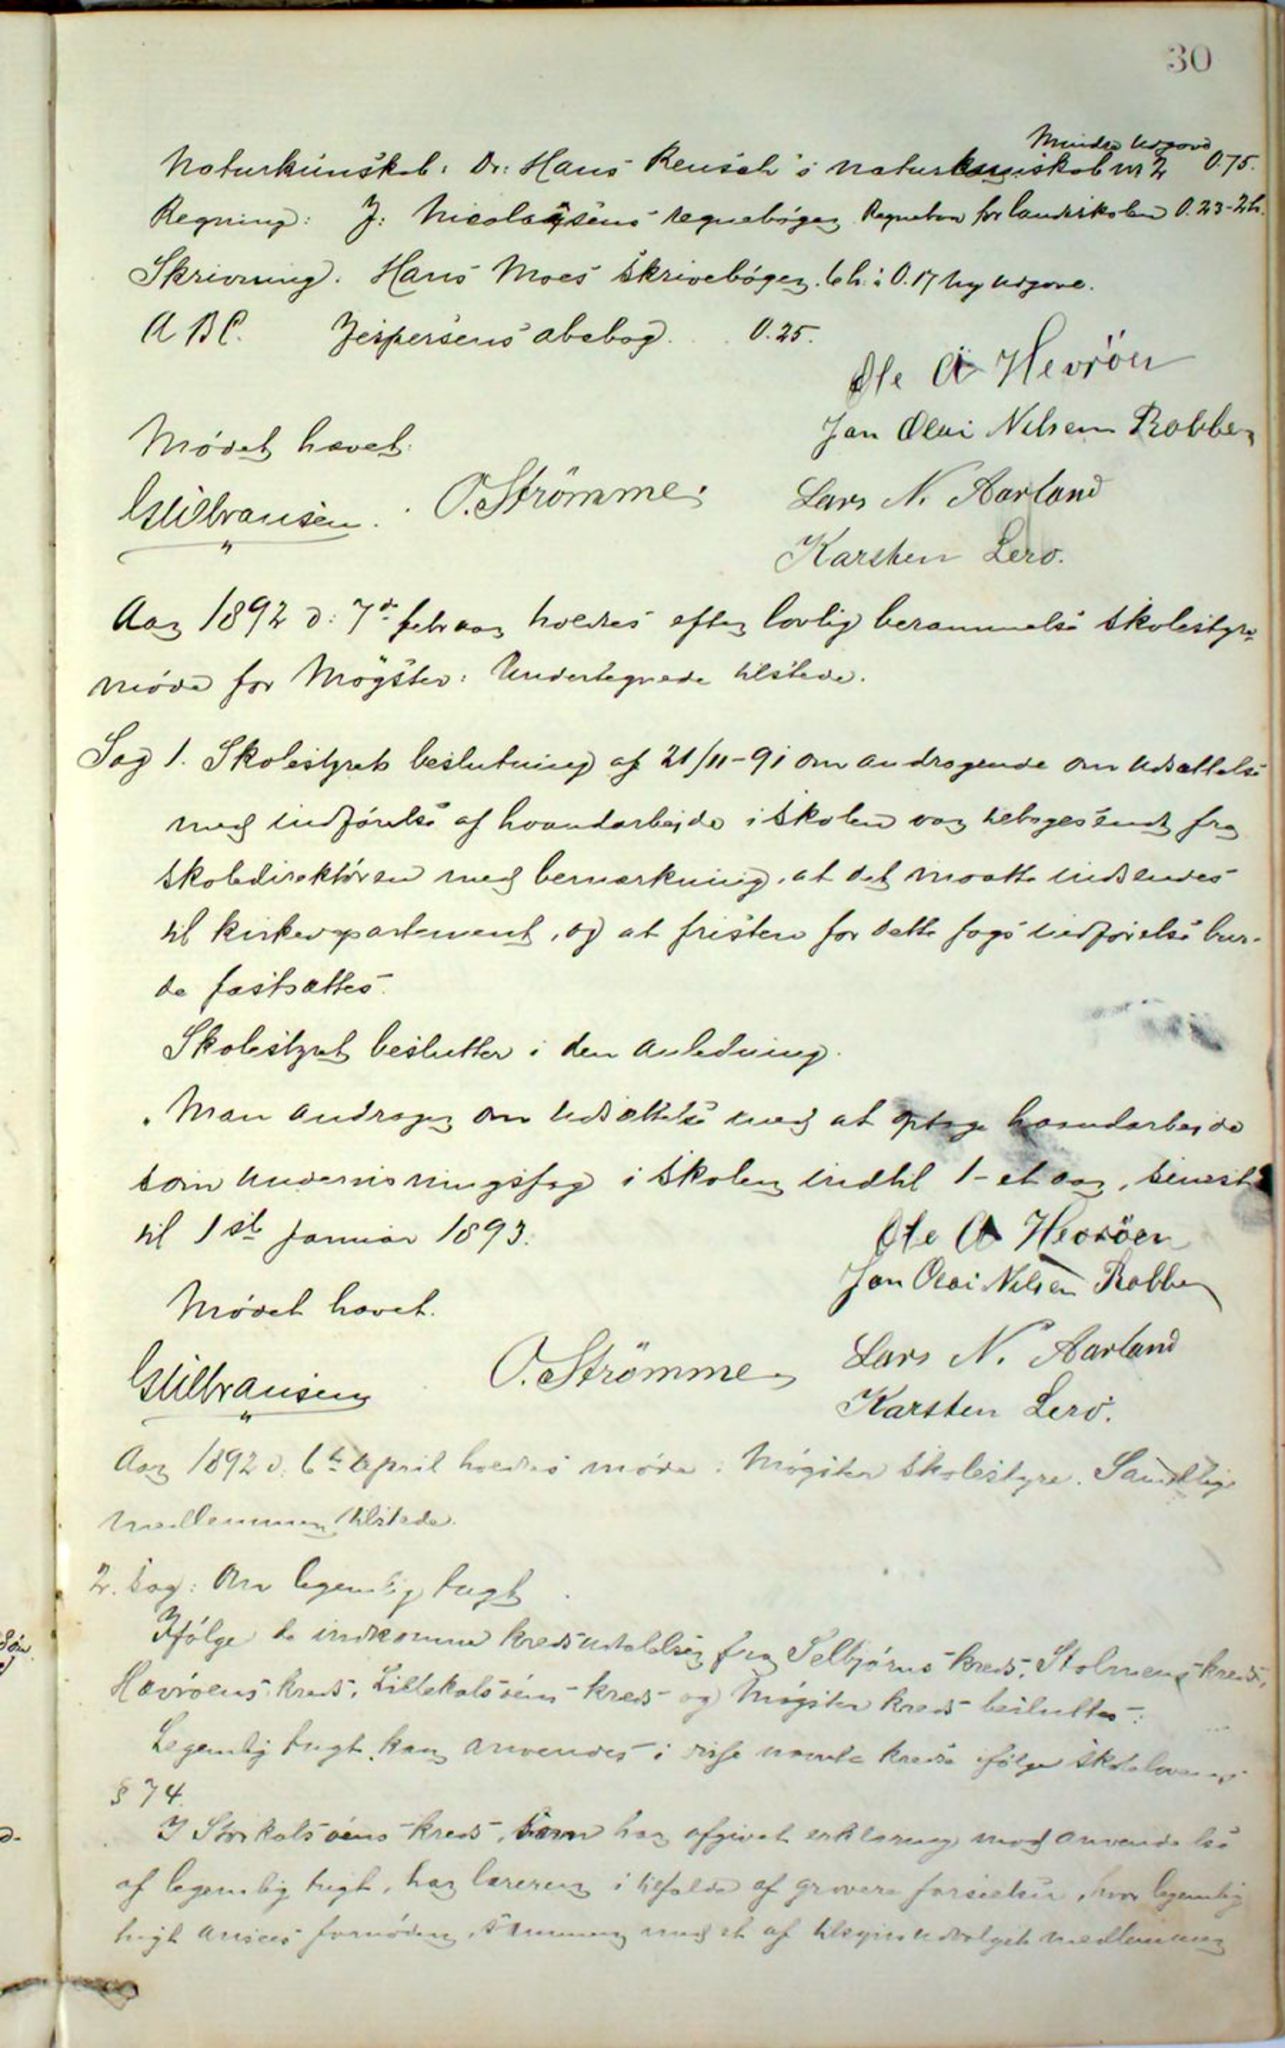 30
Mindre Udgave
Naturkundskab: Dr: Hans Reusch's naturkundskab nr 2 0.75.
Regning: J: Nicolaysens regnebøger Regnebog for landsskolen 0.23-2h.
Skrivning. Hans Moes skrivebøger. 6 h. i 0.17 ny udgave.
A B C. Jespersens abcbog. . . 0.25.
Ole A Hevrøen
Mødet hævet.
Jan Olai Nilsen Robben
O. Strømme.
Lars N. Aarland
Karsten Lerø.
Aar 1892 d: 7de februar holdtes efter lovlig berammelse skolestyre-
møde for Møgster: Undertegnede tilstede.
Sag 1. Skolestyrets beslutning af 21/11-91 om andragende om udsættelse
med indførelse af haandarbejde i skolen var tilbagesendt fra
skoledirektøren med bemærkning, at det maatte indsendes
til kirkedepartement, og at fristen for dette fags indførelse bur-
de fastsættes.
Skolestyret beslutter i den anledning.
Man andrager om udsættelse med at optage haandarbejde
som undervisningsfag i skolen indtil 1-et aar, senest
til 1ste januar 1893.
Ole A Hevrøen
Jan Olai Nilsen Robben
Mødet hævet.
O. Strømme
Lars N. Aarland
Karsten Lerø.
Aar 1892 d. 6te April holdtes møde i Møgster skolestyre. Samtlige
medlemmer tilstede.
2. Sag: Om legemlig tugt
Ifølge de indkomne kredsudtalelser fra Selbjørns kreds, Stolmens kreds,
Hævrøens kreds, Lillekalsøens kreds og Møgster kreds besluttes:
Legemlig tugt kan anvendes i disse nævnte kredse ifølge skoleloven
§ 74.
I Storkalsøens kreds, som har afgivet erklæring mod anvendelse
af legemlig tugt, har læreren i tilfælde af grovere forseelser, hvor legemlig
tugt ansees fornøden, sammen med et af tilsynsudvalgets medlemmer